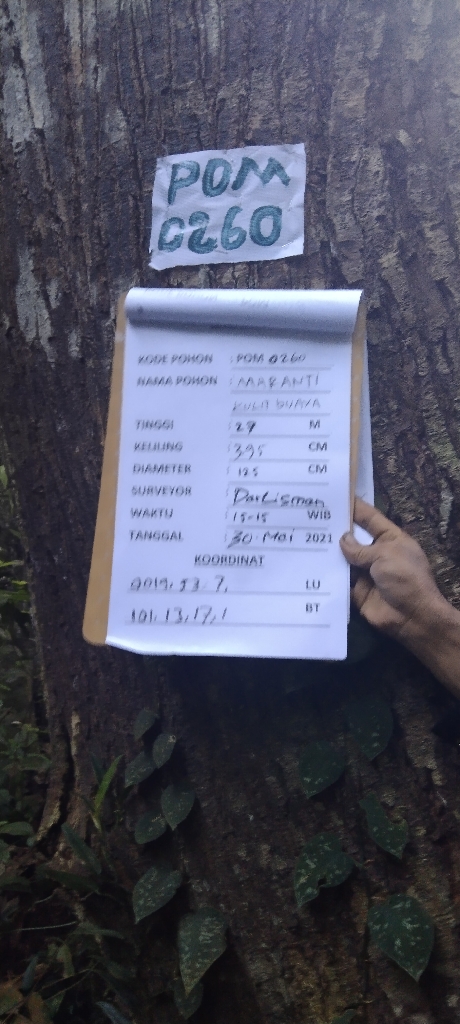 POM
0260
KODE POHON : POM 0260
NAMA POHON : MARANTI
KULIT BUAYA
TINGGI : 27 M
KELILING : 395 CM
DIAMETER : 125 CM
SURVEYOR : Darlisman
WAKTU : 15-15 WIB
TANGGAL : 30 Mei 2021
KOORDINAT
0019. 53. 7, LU
101. 13, 17, 1 BT